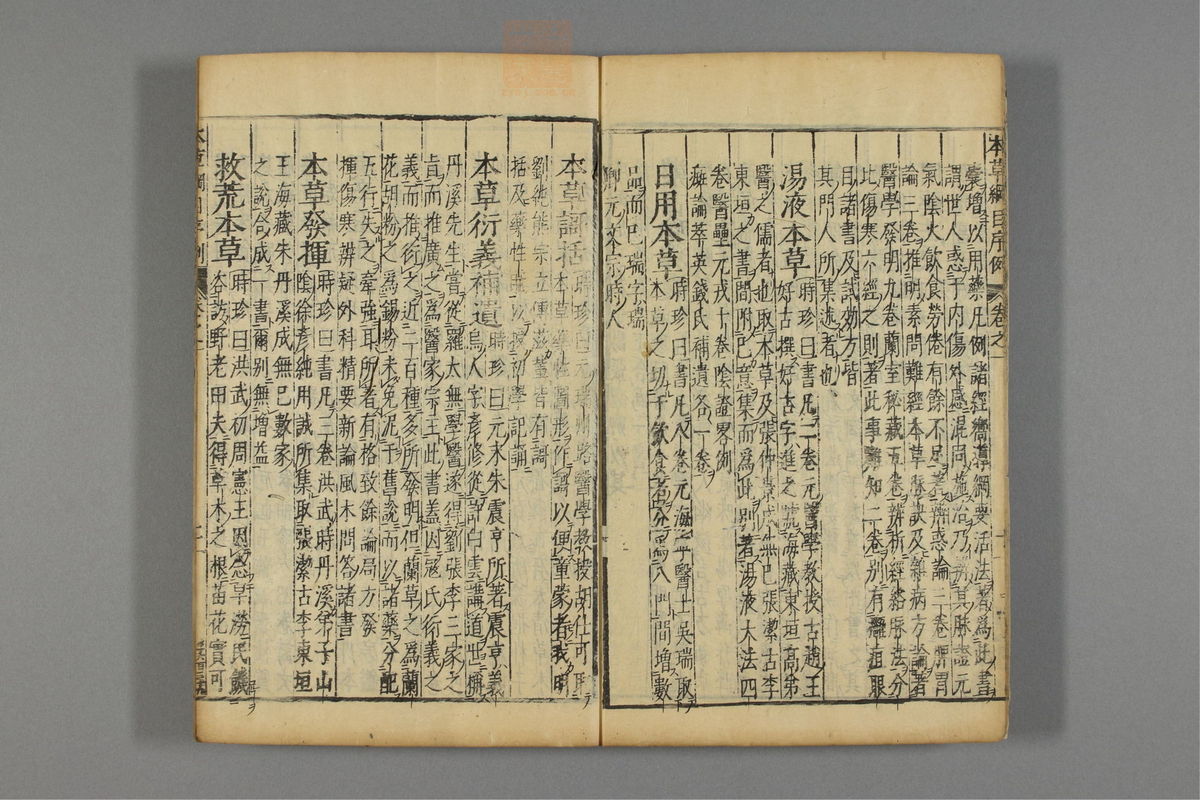 本草綱目序例 卷之一
囊增以用藥凡例諸經嚮導綱要活法著爲此書
謂世人惑于內傷外感混同施治乃辨其脉證元
氣陰火飲食勞倦有餘不足著辨惑論三卷脾胃
論三卷推明素問難經本草脉訣及雜病方論著
醫學發明九卷蘭室秘藏五卷辨析經絡脉法分
此傷寒六經之則著此事難知二卷別有癰疽眼
目諸書及試効方皆
其門人所集述者也
湯液本草 時珍曰書凡二卷元醫學教授古趙王
好古撰好古字進之號海藏東垣高弟
醫之儒者也取本草及張仲景成無已張潔古李
東垣之書間附已意集而爲此別著湯液大法四
卷醫壘元戎十卷陰證畧例
癍論萃英錢氏補遺各一卷
日用本草 時珍曰書凡八卷元海寧醫士吳瑞取
本草之切于飲食者分爲八門間增數
品而已瑞字瑞
卿元文宗時人
本草謌括 時珍曰元瑞州路醫學教授胡仕可取
本草藥性圖形作謌以便童蒙者我明
劉純熊宗立傅滋輩皆有謌
括及藥性賦以授初學記誦
本草衍義補遺 時珍曰元末朱震亨所著震亨義
烏人字彥修從許白雲講道世稱
丹溪先生嘗從羅太無學醫遂得劉張李三家之
旨而推廣之爲醫家宗主此書盖因寇氏衍義之
義而推衍之近二百種多所發明但蘭草之爲蘭
花胡粉之爲錫粉未免泥于舊說而以諸藥分配
五行失之牽強耳所著有格致餘論局方發
揮傷寒辨疑外科精要新論風木問答諸書
本草發揮 時珍曰書凡三卷洪武時丹溪弟子山
陰徐彥純用誠所集取張潔古李東垣
王海藏朱丹溪成無已數家
之說合成一書爾別無增益
救荒本草 時珍曰洪武初周憲王因念旱澇民饑
咨訪野老田夫得草木之根苗花實可